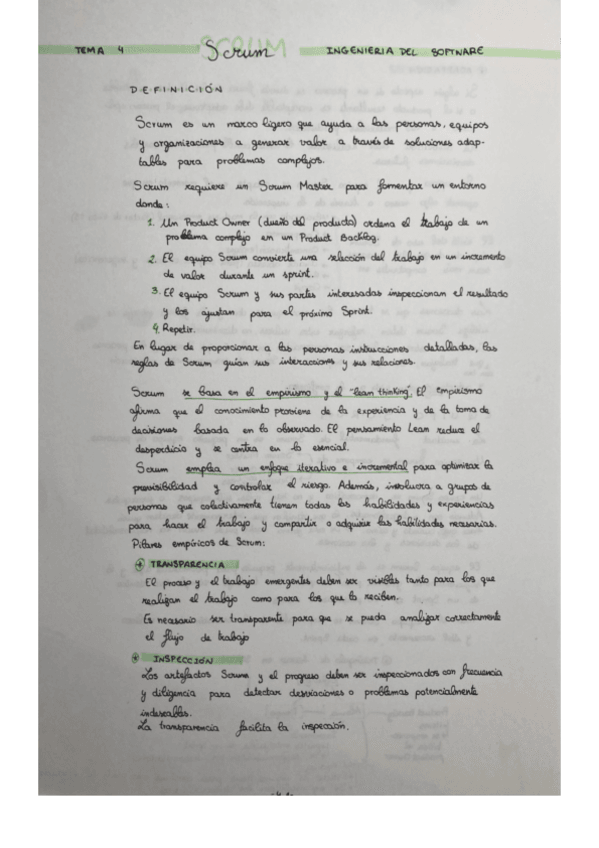 TEMA 4 Scrum INGENIERIA DEL SOFTWARE
DEFINICIÓN
Scrum es un marco ligero que ayuda a las personas, equipos
y organizaciones a generar valor a través de soluciones adap-
tables para problemas complejos.
Scrum requiere un Scrum Master para fomentar un entorno
donde:
1. Un Product Owner (dueño del producto) ordena el trabajo de un
problema complejo en un Product Backlog.
2. El equipo Scrum convierte una selección del trabajo en un incremento
de valor durante un sprint.
3. El equipo Scrum y sus partes interesadas inspeccionan el resultado
y los ajustan para el próximo Sprint.
4. Repetir.
En lugar de proporcionar a las personas instrucciones detalladas, las
reglas de Scrum guían sus interacciones y sus relaciones.
Scrum se basa en el empirismo y el "lean thinking". El empirismo
afirma que el conocimiento proviene de la experiencia y de la toma de
decisiones basada en lo observado. El pensamiento Lean reduce el
desperdicio y se centra en lo esencial.
Scrum emplea un enfoque iterativo e incremental para optimizar la
previsibilidad y controlar el riesgo. Además, involucra a grupos de
personas que colectivamente tienen todas las habilidades y experiencias
para hacer el trabajo y compartir o adquirir las habilidades necesarias.
Pilares empíricos de Scrum:
TRANSPARENCIA
El proceso y el trabajo emergentes deben ser visibles tanto para los que
realizan el trabajo como para los que lo reciben.
Es necesario ser transparente para que se pueda analizar correctamente
el flujo de trabajo
INSPECCIÓN
Los artefactos Scrum y el progreso deben ser inspeccionados con frecuencia
y diligencia para detectar desviaciones o problemas potencialmente
indeseables.
La transparencia facilita la inspección.